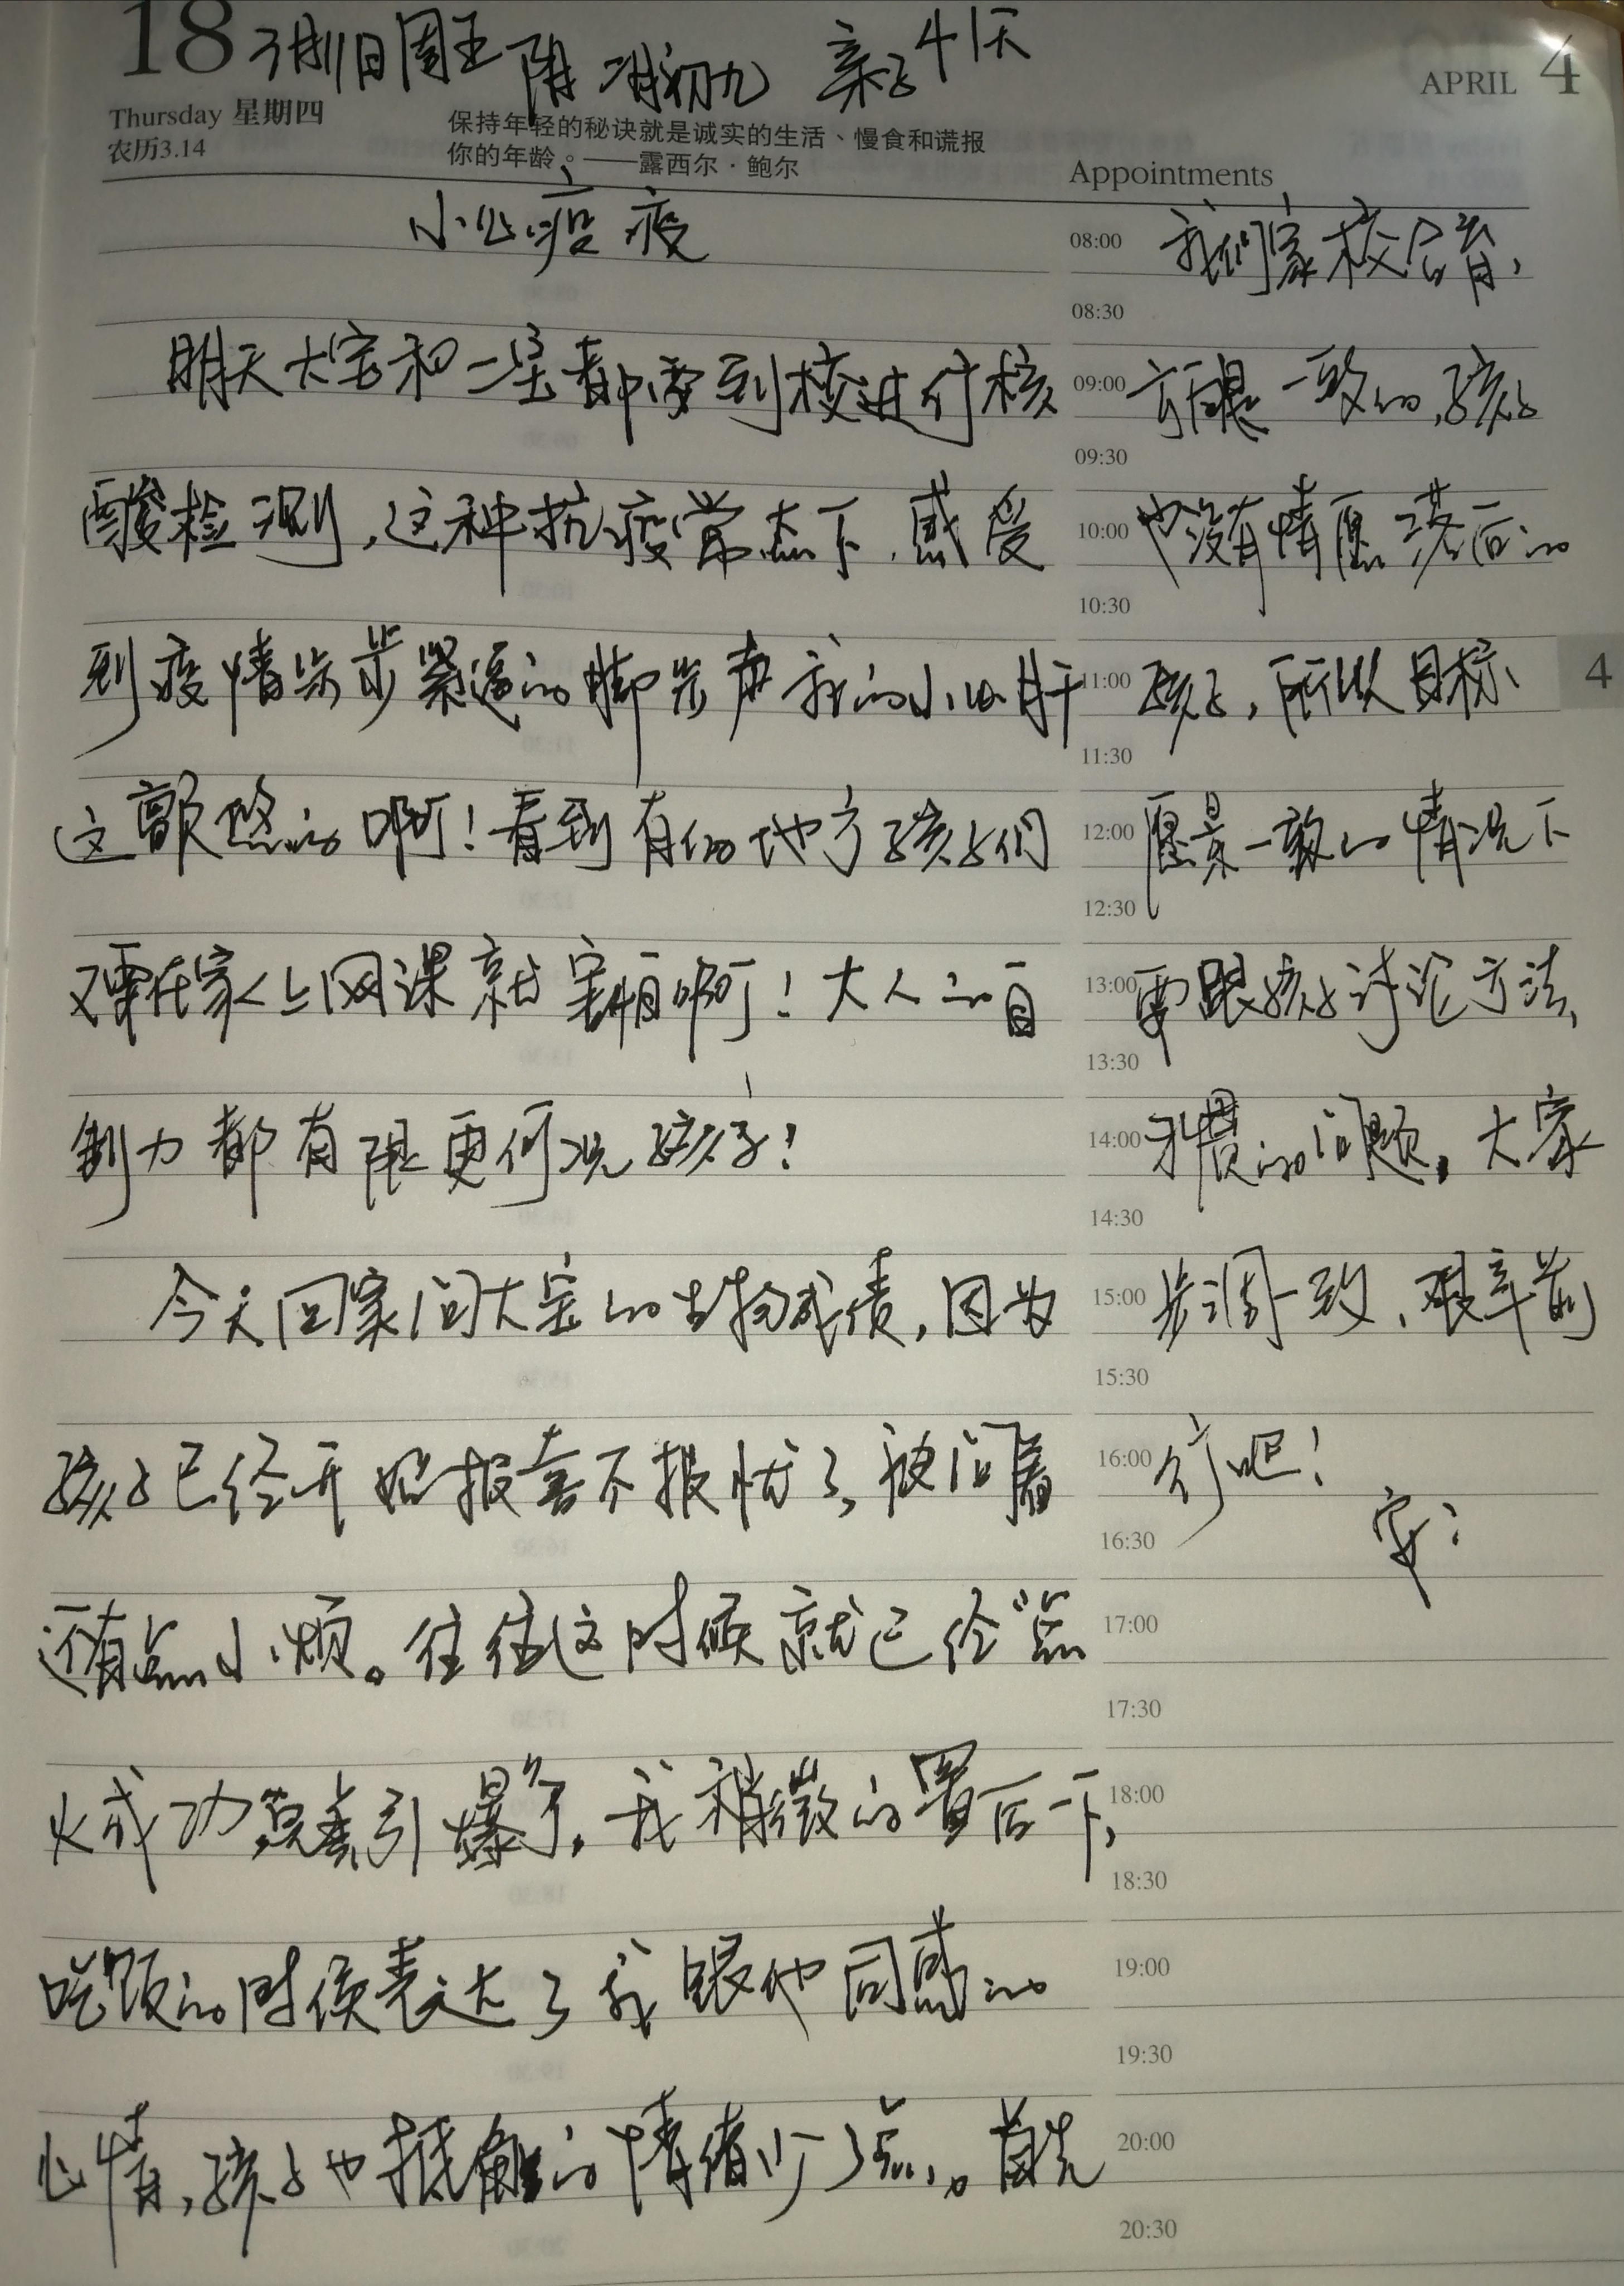 18 3月11日周五 阴 二月初九 亲子41天
APRIL 4
Thursday 星期四
农历3.14
保持年轻的秘诀就是诚实的生活、慢食和谎报
你的年龄。——露西尔·鲍尔
Appointments
小心疫疫
明天大宝和二宝都需到校进行核
酸检测,这种抗疫常态下,感受
到疫情步步紧逼的脚步声我的小心肝
这颤悠的啊!看到有的地方孩子们
又要在家上网课就害怕啊!大人的自
制力都有限更何况孩子!
今天回家问大宝的生物成绩,因为
孩子已经开始报喜不报忧了,被问着
还有点小烦。往往这时候就已经“点
火成功”,引爆了,我稍微的置后一下,
吃饭的时候表达了我跟他同感的
心情,孩子也抵触的情绪少了点。首先
08:00 我们家校合育,
08:30
09:00 方向是一致的,孩子
09:30
10:00 也没有情愿落后的
10:30
11:00 孩子,所以目标、
11:30
12:00 愿景一致的情况下
12:30
13:00 要跟孩子讨论方法、
13:30
14:00 习惯的问题,大家
14:30
15:00 步调一致,艰辛前
15:30
16:00 行吧!
16:30 安:
17:00
17:30
18:00
18:30
19:00
19:30
20:00
20:30
4